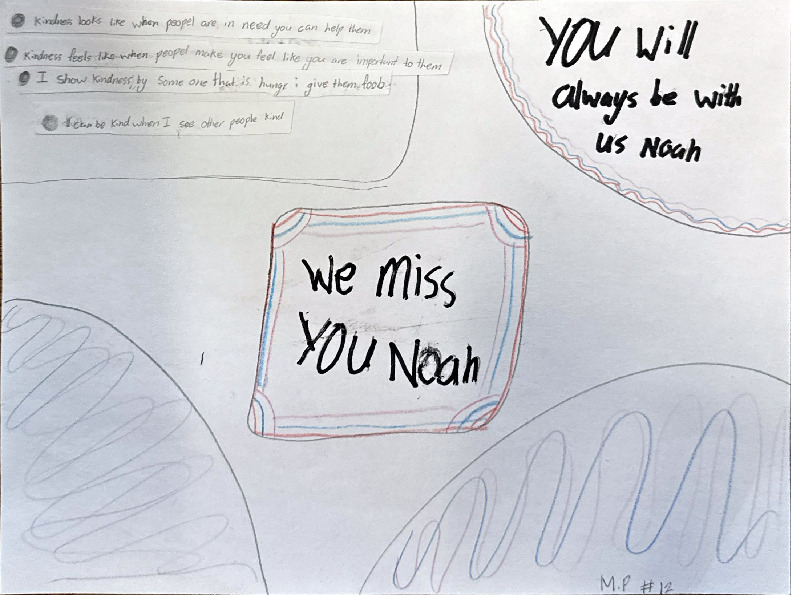 Kindness looks like when peopel are in need you can help them
Kindness feels like when peopel make you feel like you are important to them
I show kindness by some one that is hungr i give them foob
I can be kind when I see other people kind
YOU Will
always be with
us Noah
We miss
YOU Noah
M.P #12